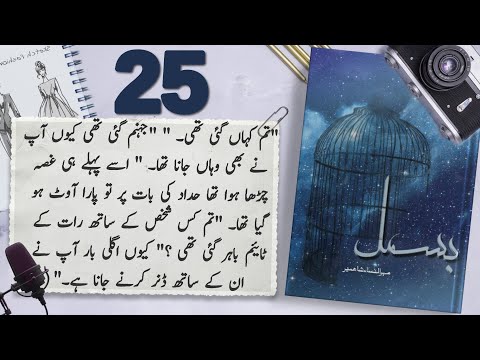 Sketch Fashion
25
"تم کہاں گئی تھی۔ " " جہنم گئی تھی کیوں آپ
نے بھی وہاں جانا تھا۔ " اسے پہلے ہی غصہ
چڑھا ہوا تھا حداد کی بات پر تو پارا آوٹ ہو
گیا تھا۔ "تم کس شخص کے ساتھ رات کے
ٹائیم باہر گئی تھی ؟" کیوں اگلی بار آپ نے
ان کے ساتھ ڈنر کرنے جانا ہے۔"
بسمل
مہرالنساء شاہمیر